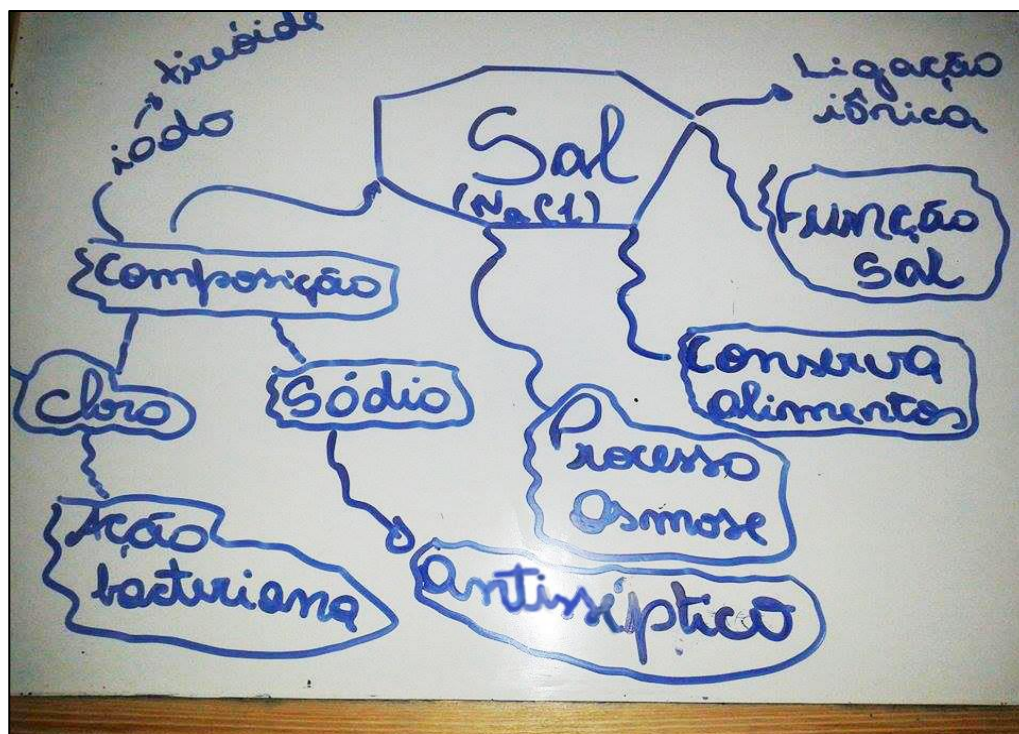 tireóide
iódo
Sal
(NaCl)
Ligação
iônica
Função
Sal
Composição
Cloro
Sódio
Conserva
alimentos
Processo
Osmose
Ação
bacteriana
antisséptico